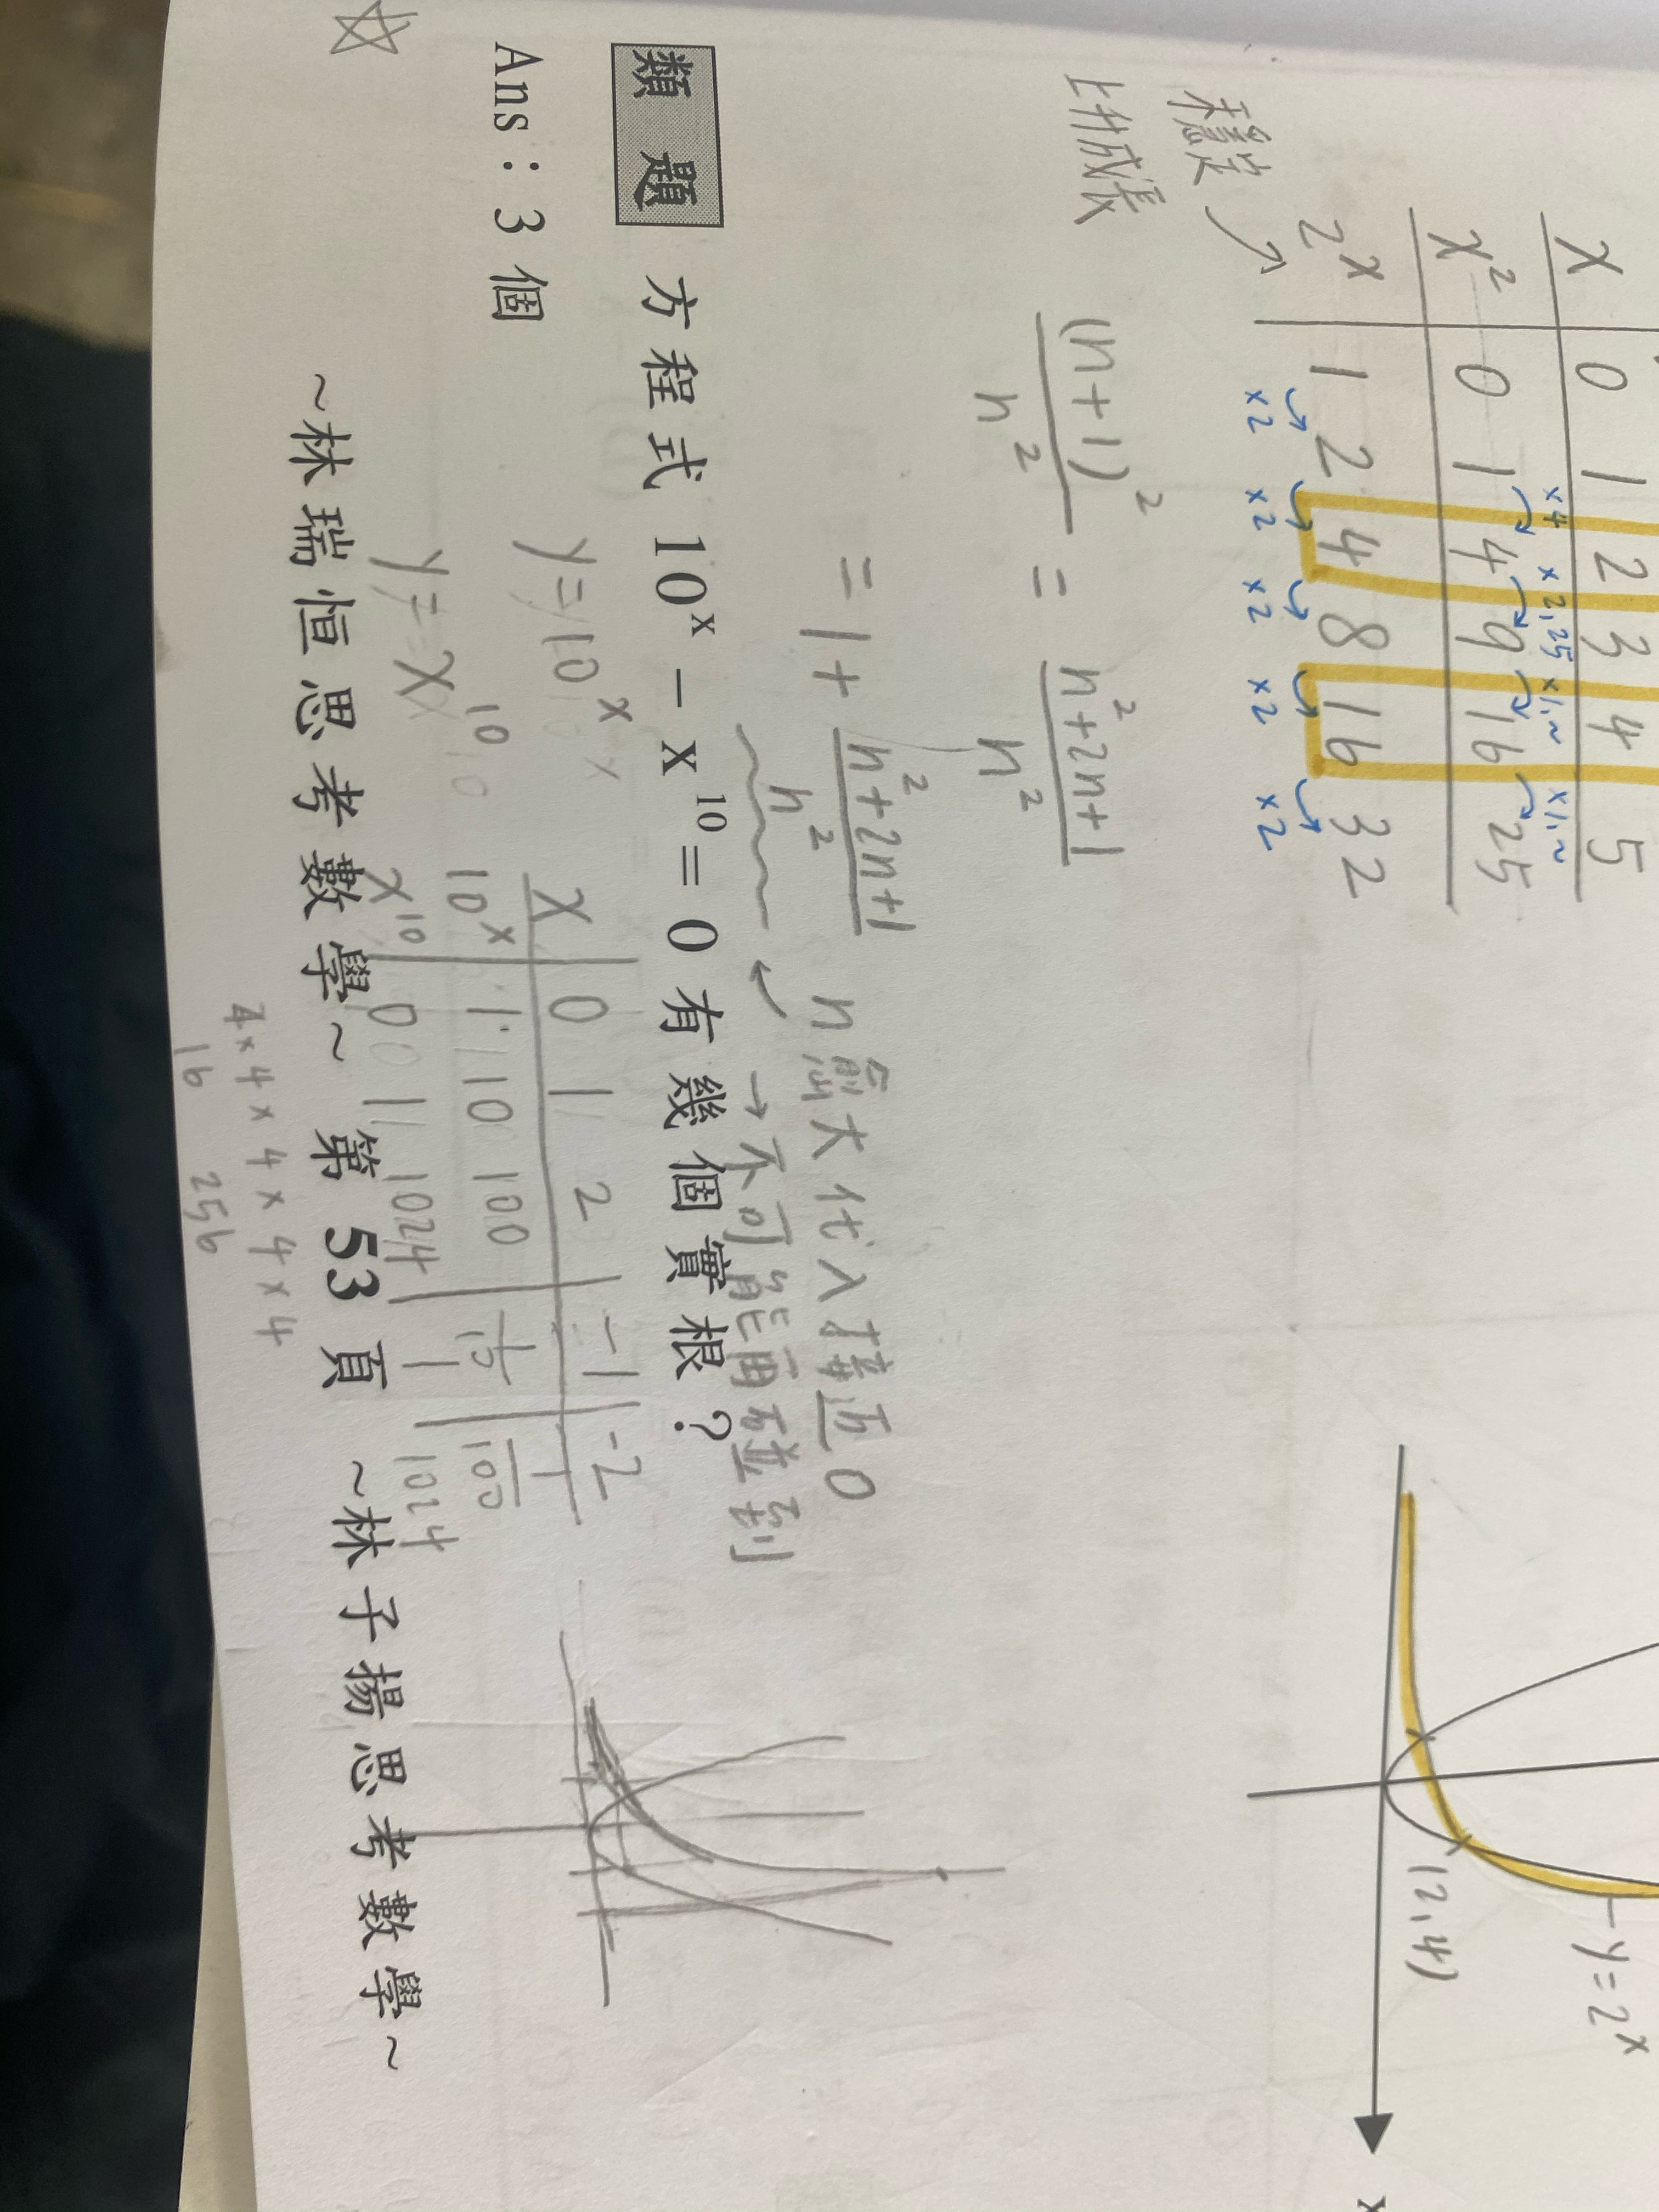 x 0 1 2 3 4 5
×4 ×2.25 ×1.~ ×1.~
x² 0 1 4 9 16 25
2ˣ 1 2 4 8 16 32
×2 ×2 ×2 ×2 ×2
穩定
上升成長
y=2ˣ
(2,4)
x
(n+1)²/n² = n²+2n+1/n²
= 1+ n²+2n+1/n²
n無大代入接近0
→不可能再碰到
類題 方程式 10ˣ − x¹⁰ = 0 有幾個實根?
Ans:3 個
y=10ˣ
y=x¹⁰
x 0 1 2 -1 -2
10ˣ 1 10 100 1/10 1/100
x¹⁰ 0 1 1024 1 1024
~林瑞恒思考數學~ 第 53 頁 ~林子揚思考數學~
4×4×4×4×4
16 256